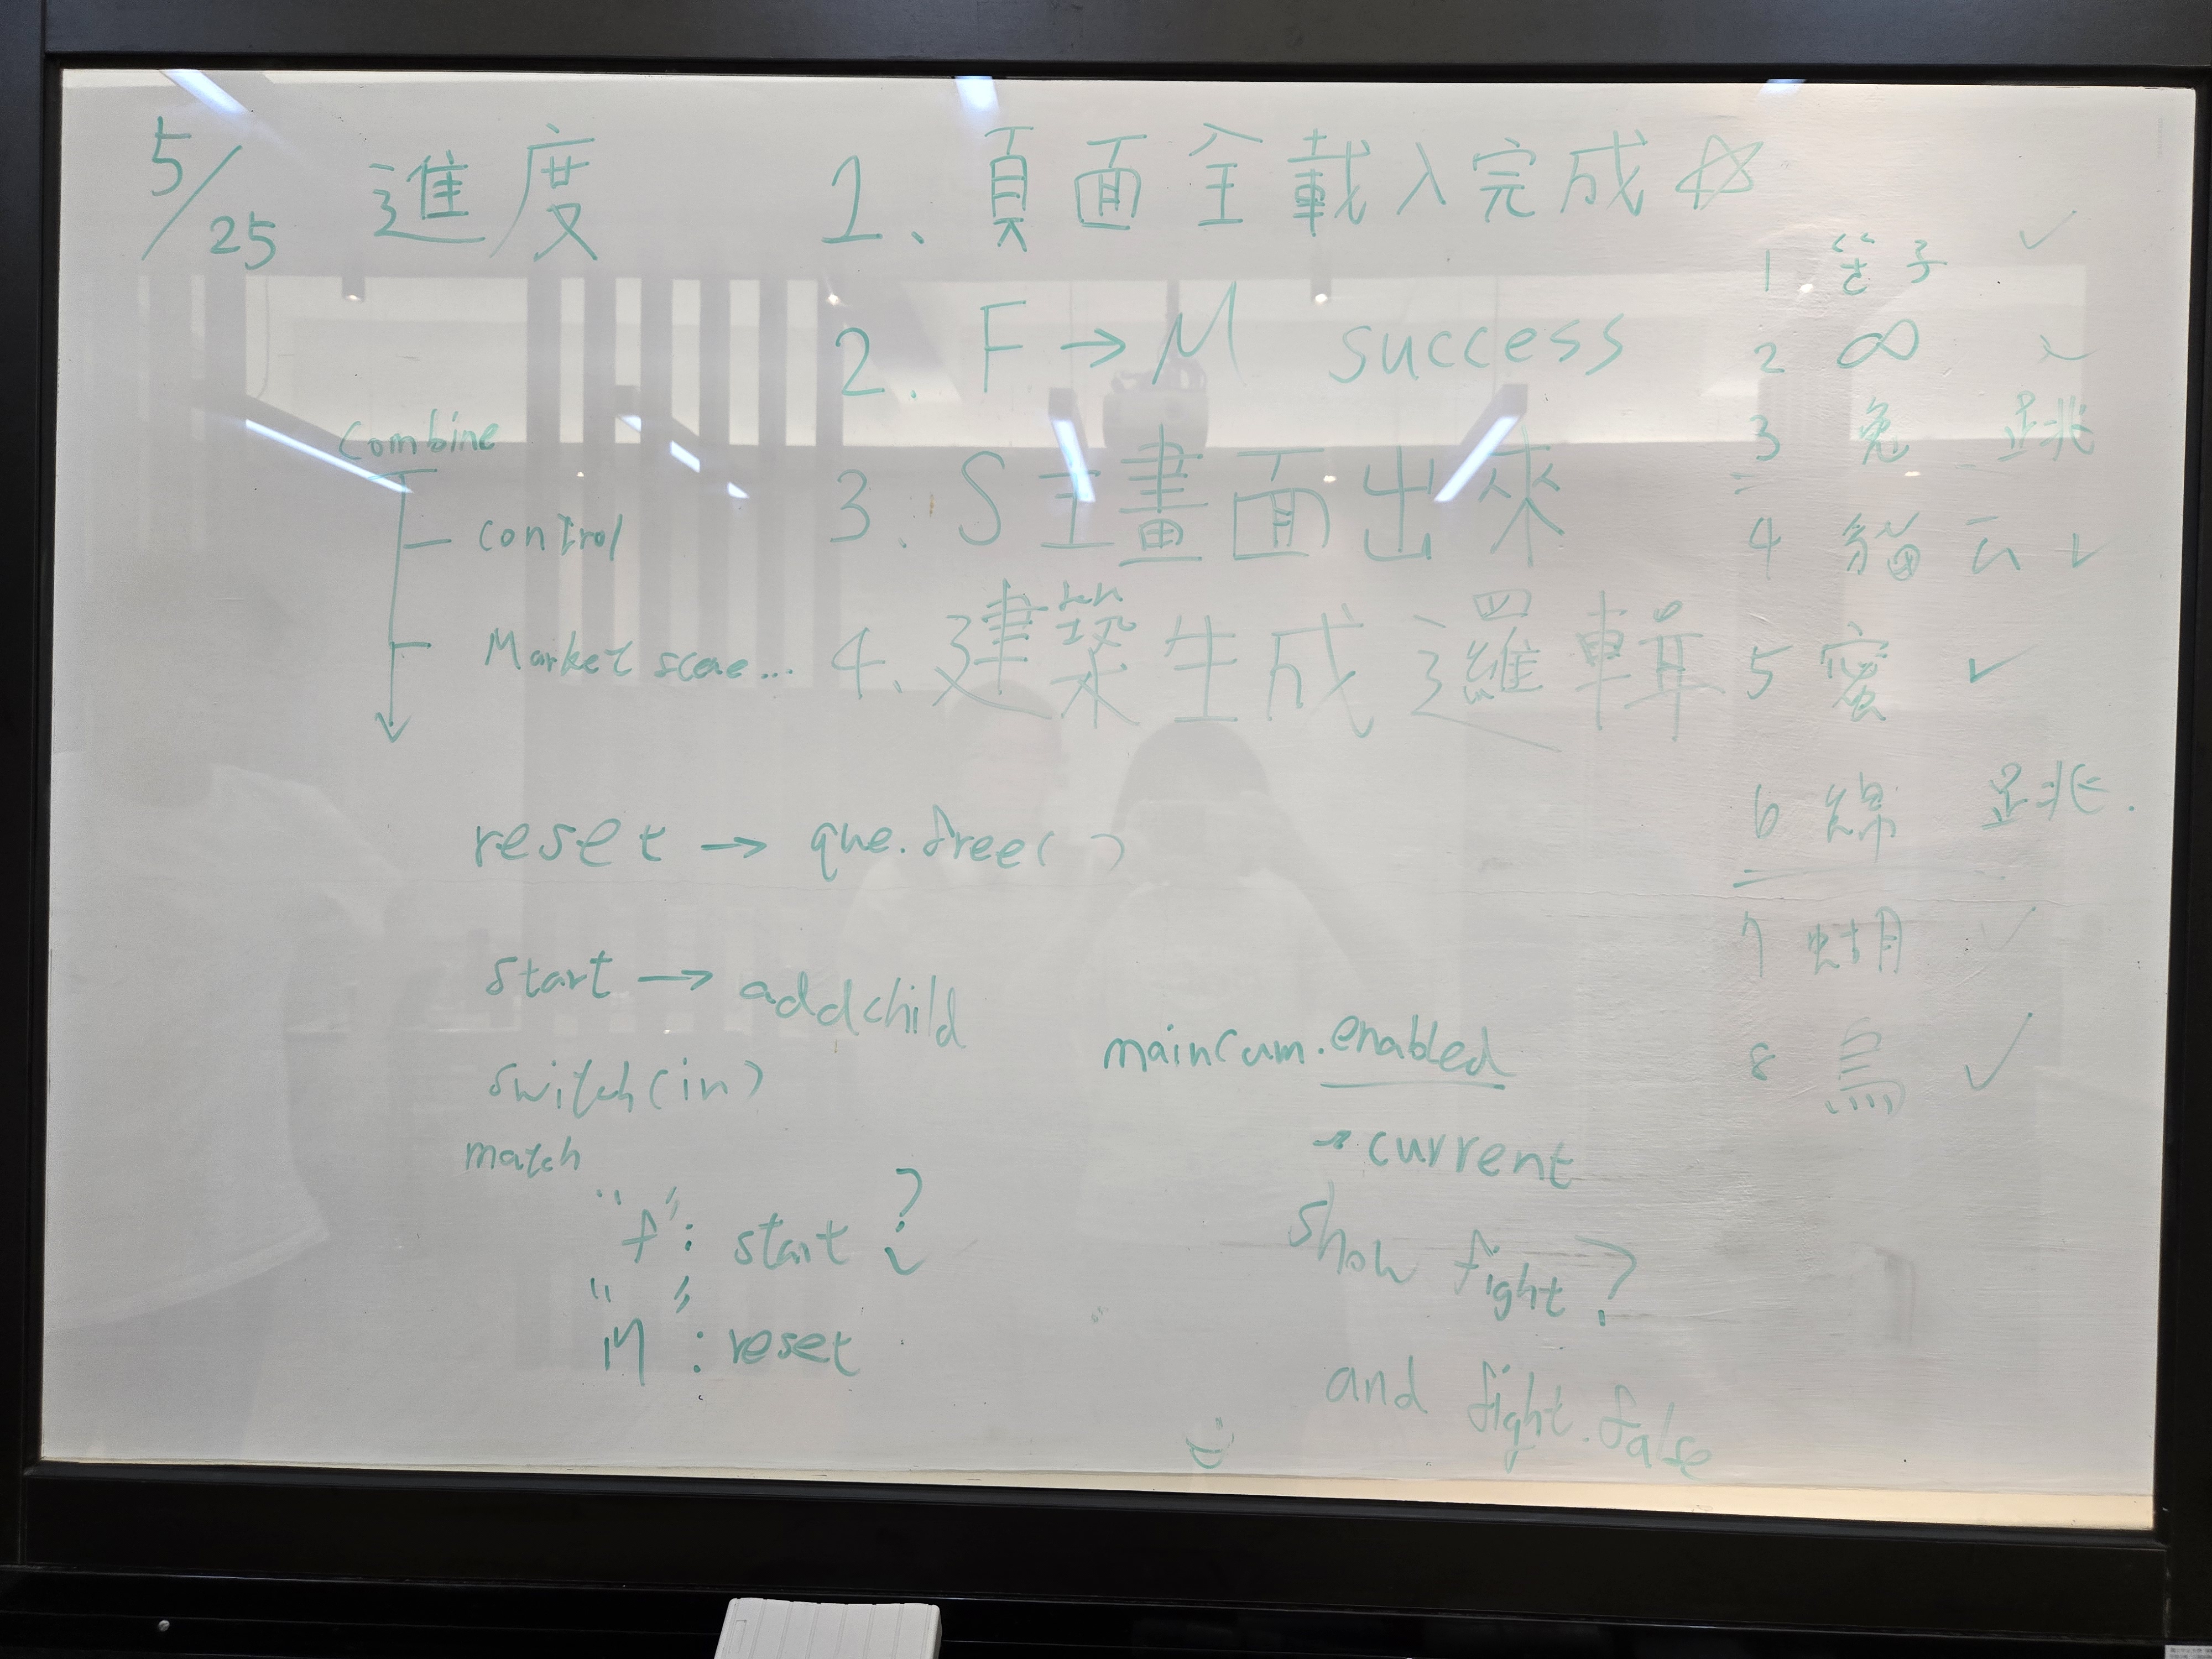 5/25 進度
1、頁面全載入完成☆
2. F → M success
3、S主畫面出來
4、建築生成邏輯
combine
control
Market scae...
reset → que.free( )
start → addchild
switch(in)
match
"f": start ?
"M": reset
mainCam.enabled
→ current
show fight ?
and fight.false
1 笠子 ✓
2 ∞
3 兔 跳
4 貓 ✓
5 蜜 ✓
6 綿 跳.
7 蝴 ✓
8 鳥 ✓